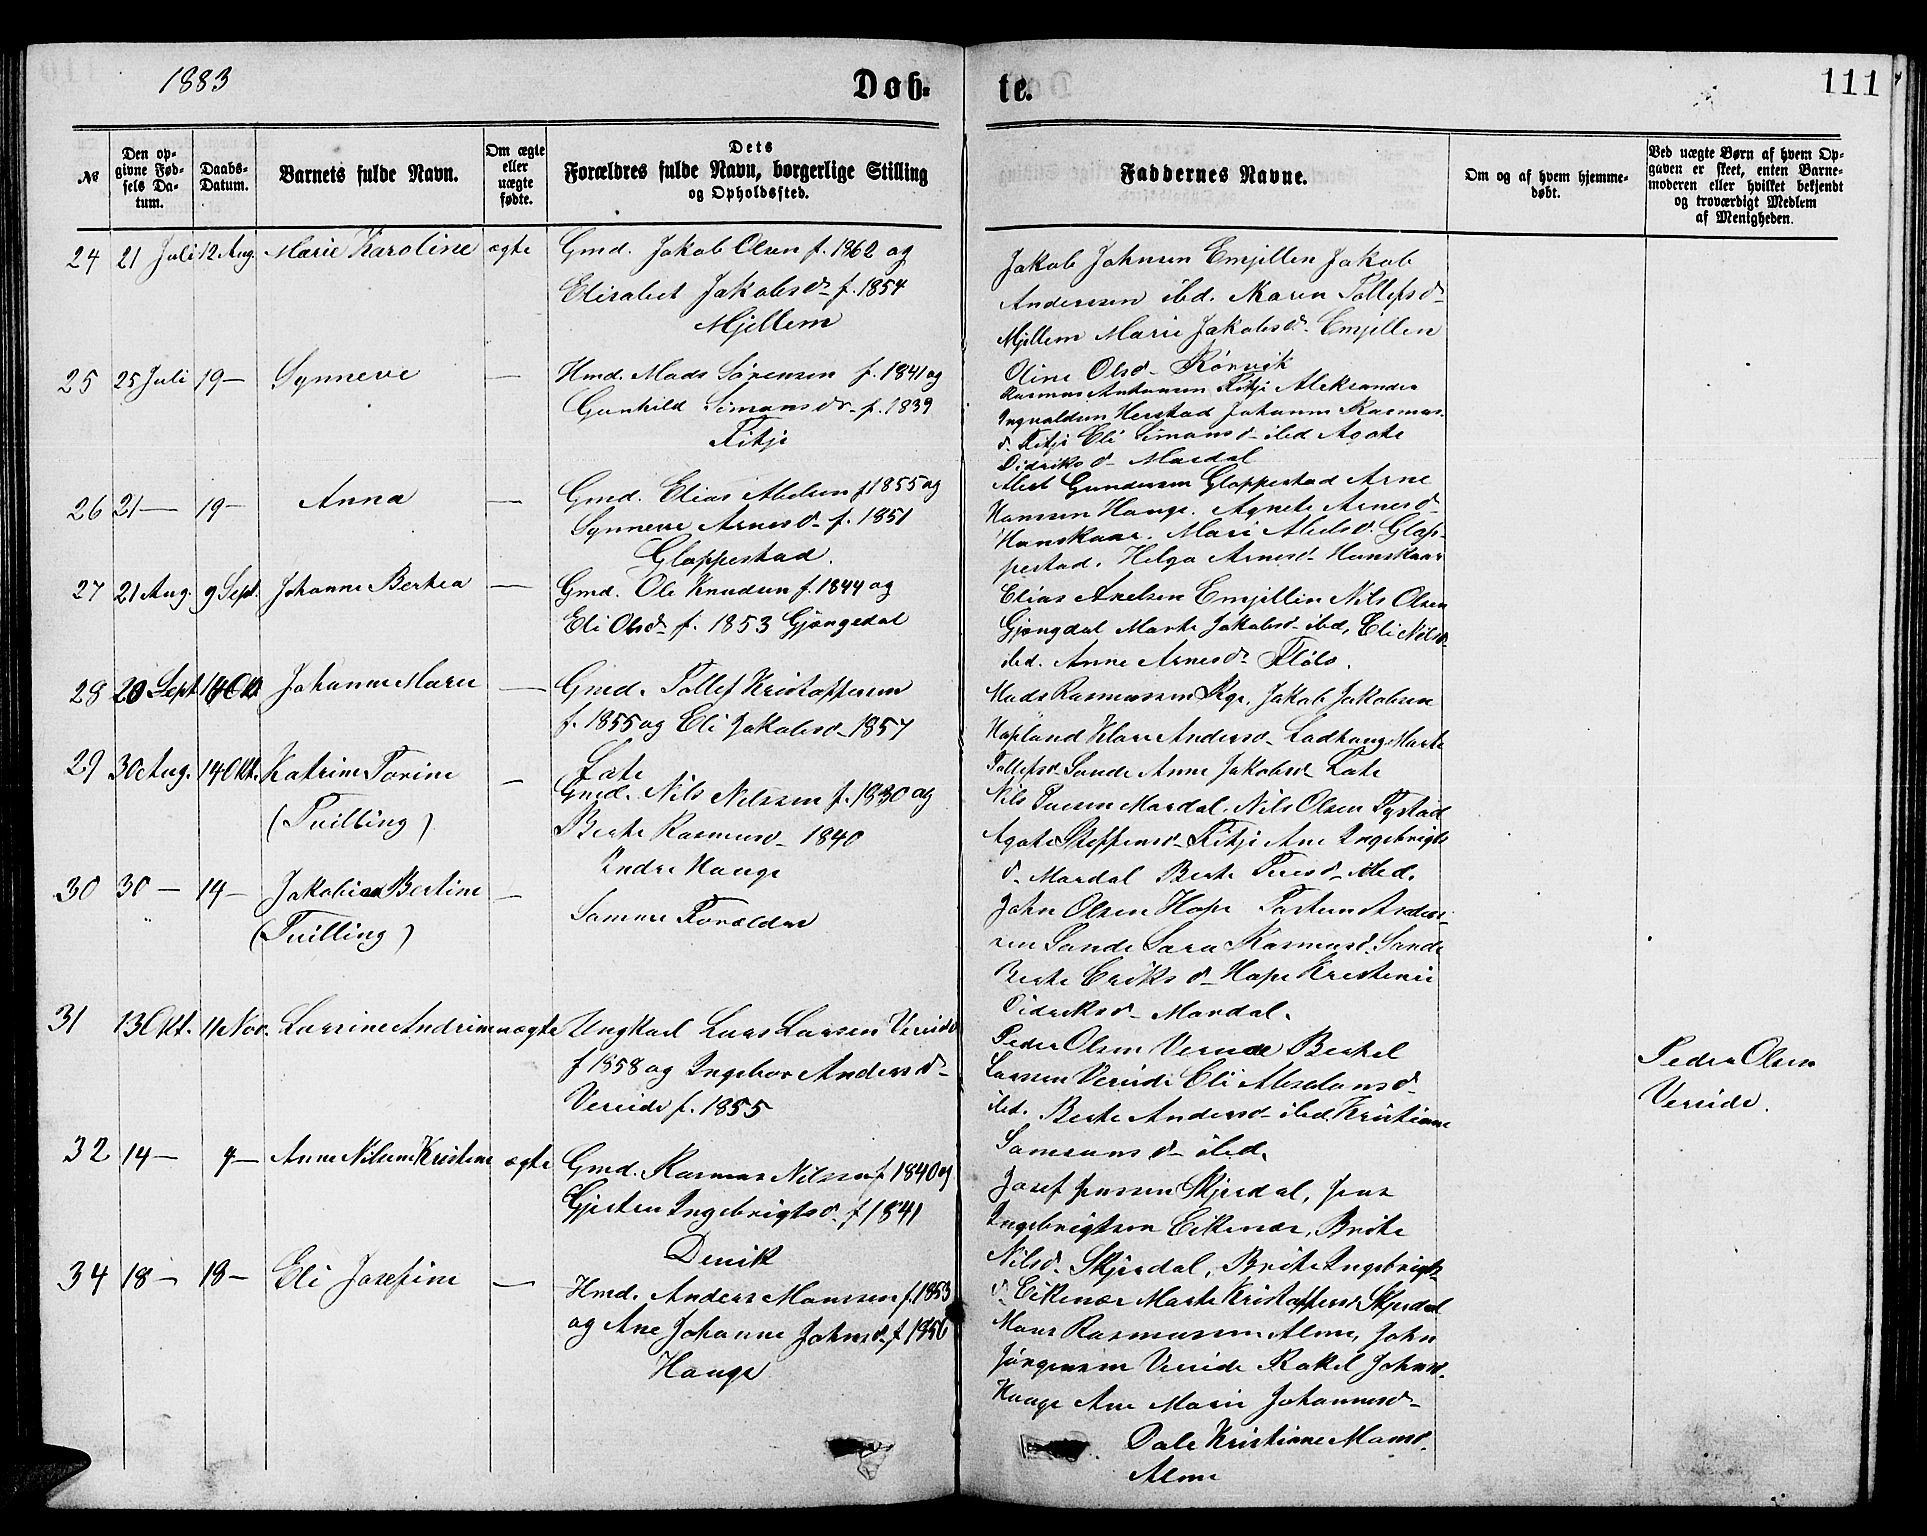 1883
Døb-
te.
111
№
Den op-
givne Fød-
sels Da-
tum.
Daabs-
Datum.
Barnets fulde Navn.
Om ægte
eller
uægte
fødte.
Dets
Forældres fulde Navn, borgerlige Stilling
og Opholdssted.
Faddernes Navne.
Om og af hvem hjemme-
døbt.
Ved uægte Børn af hvem Op-
gaven er skeet, enten Barne-
moderen eller hvilket bekjendt
og troværdigt Medlem
af Menigheden.
24 21 Juli 12 Aug. Marie Karoline ægte Gmd. Jakob Olsen f. 1862 og
Elisabet Jakobsd. f. 1854
Mjellem
Jakob Johnsen Emjellen Jakob
Anderssen ibd. Maren Tollefsd.
Mjellem Marie Jakobsd. Emjellen
Oline Olsd. Rørvik
25 25 Juli 19 — Synneve — Hmd. Mads Sørensen f. 1841 og
Gunhild Simonsd. f. 1839
Fitje
Rasmus Antonsen Fitje Aleksander
Ingvaldsen Herstad Johanne Rasmus-
d. Fitje Eli Simonsd. ibd Agate
Didriksd. Mardal
26 21 — 19 — Anna — Gmd. Elias Abelsen f 1855 og
Synneve Arnesd. f. 1851
Gloppestad.
Abel Gundersen Gloppestad Arne
Hanssen Hauge. Agnete Arnesd.
Hanskaar. Mari Abelsd. Glop-
pestad. Helga Arnesd. Hanskaar
27 21 Aug. 9 Sept. Johanne Bertea — Gmd. Ole Knudsen f. 1844 og
Eli Olsd. f. 1853 Gjengedal
Elias Axelsen Emjellen Nils Olsen
Gjengdal Marte Jakobsd. ibd, Eli Nilsd.
ibd. Anne Arnesd. Flølo.
28 20 Sept 14 Okt. Johanne Marie — Gmd. Tollef Kristoffersen
f. 1855 og Eli Jakobsd. 1857
Lote
Mads Rasmussen Rye, Jakob Jakobsen
Hopland Klara Andersd. Ladhaug Marte
Tollefsd. Sande Anne Jakobsd. Lote
29 30 Aug. 14 Okt. Katrine Torine — Gmd. Nils Nilssen f. 1830 og
(Tvilling)
Berte Rasmusd. 1840
Indre Hauge
Nils Mardal, Nils Olsen Tystad
Agate Steffensd. Fitje Ane Ingebrigts
d. Mardal Berte ibd.
30 30 — 14 — Jakobine Bertine —
(Tvilling)
Samme Forældre
John Olsen Hope
Sande Sara Rasmusd. Sande
Berte Eriksd. Hope Kristense
Didriksd. Mardal.
31 13 Okt. 11 Nov. Larrine Andrine uægte Ungkarl Lars Larsen Vereide
f 1858 og Ingebor Andersd.
Vereide f. 1855
Peder Olsen Vereide Bertel
Larsen Vereide Eli Absalonsd.
ibd. Berte Andersd. ibd. Kristiane
Samsonsd. ibd.
Peder Olsen
Vereide.
32 14 — 4 — Anne Nilsine Kristine ægte Gmd. Rasmus Nilssen f 1840 og
Gjertru Ingebrigtsd. f 1841
Devik
Josef Jenssen Skjerdal, Jens
Ingebrigtsen Eikenær, Brite
Nilsd. Skjerdal, Brite Ingebrigts-
d. Eikenær Marte Kristoffersd. Skjerdal
34 18 — 18 — Eli Josefine — Hmd. Anders Monssen f. 1853
og Ane Johanne Johnsd. f 1856
Hauge
Mons Rasmussen Alme, John
Jørgensen Vereide Rakel Johnsd.
Hauge Ane Marie Johannesd.
Dale Kristiane Monsd.
Alme